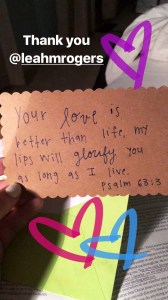 Thank you
@leahmrogers
Your love is
better than life, my
lips will glorify you
as long as I live.
Psalm 63:3